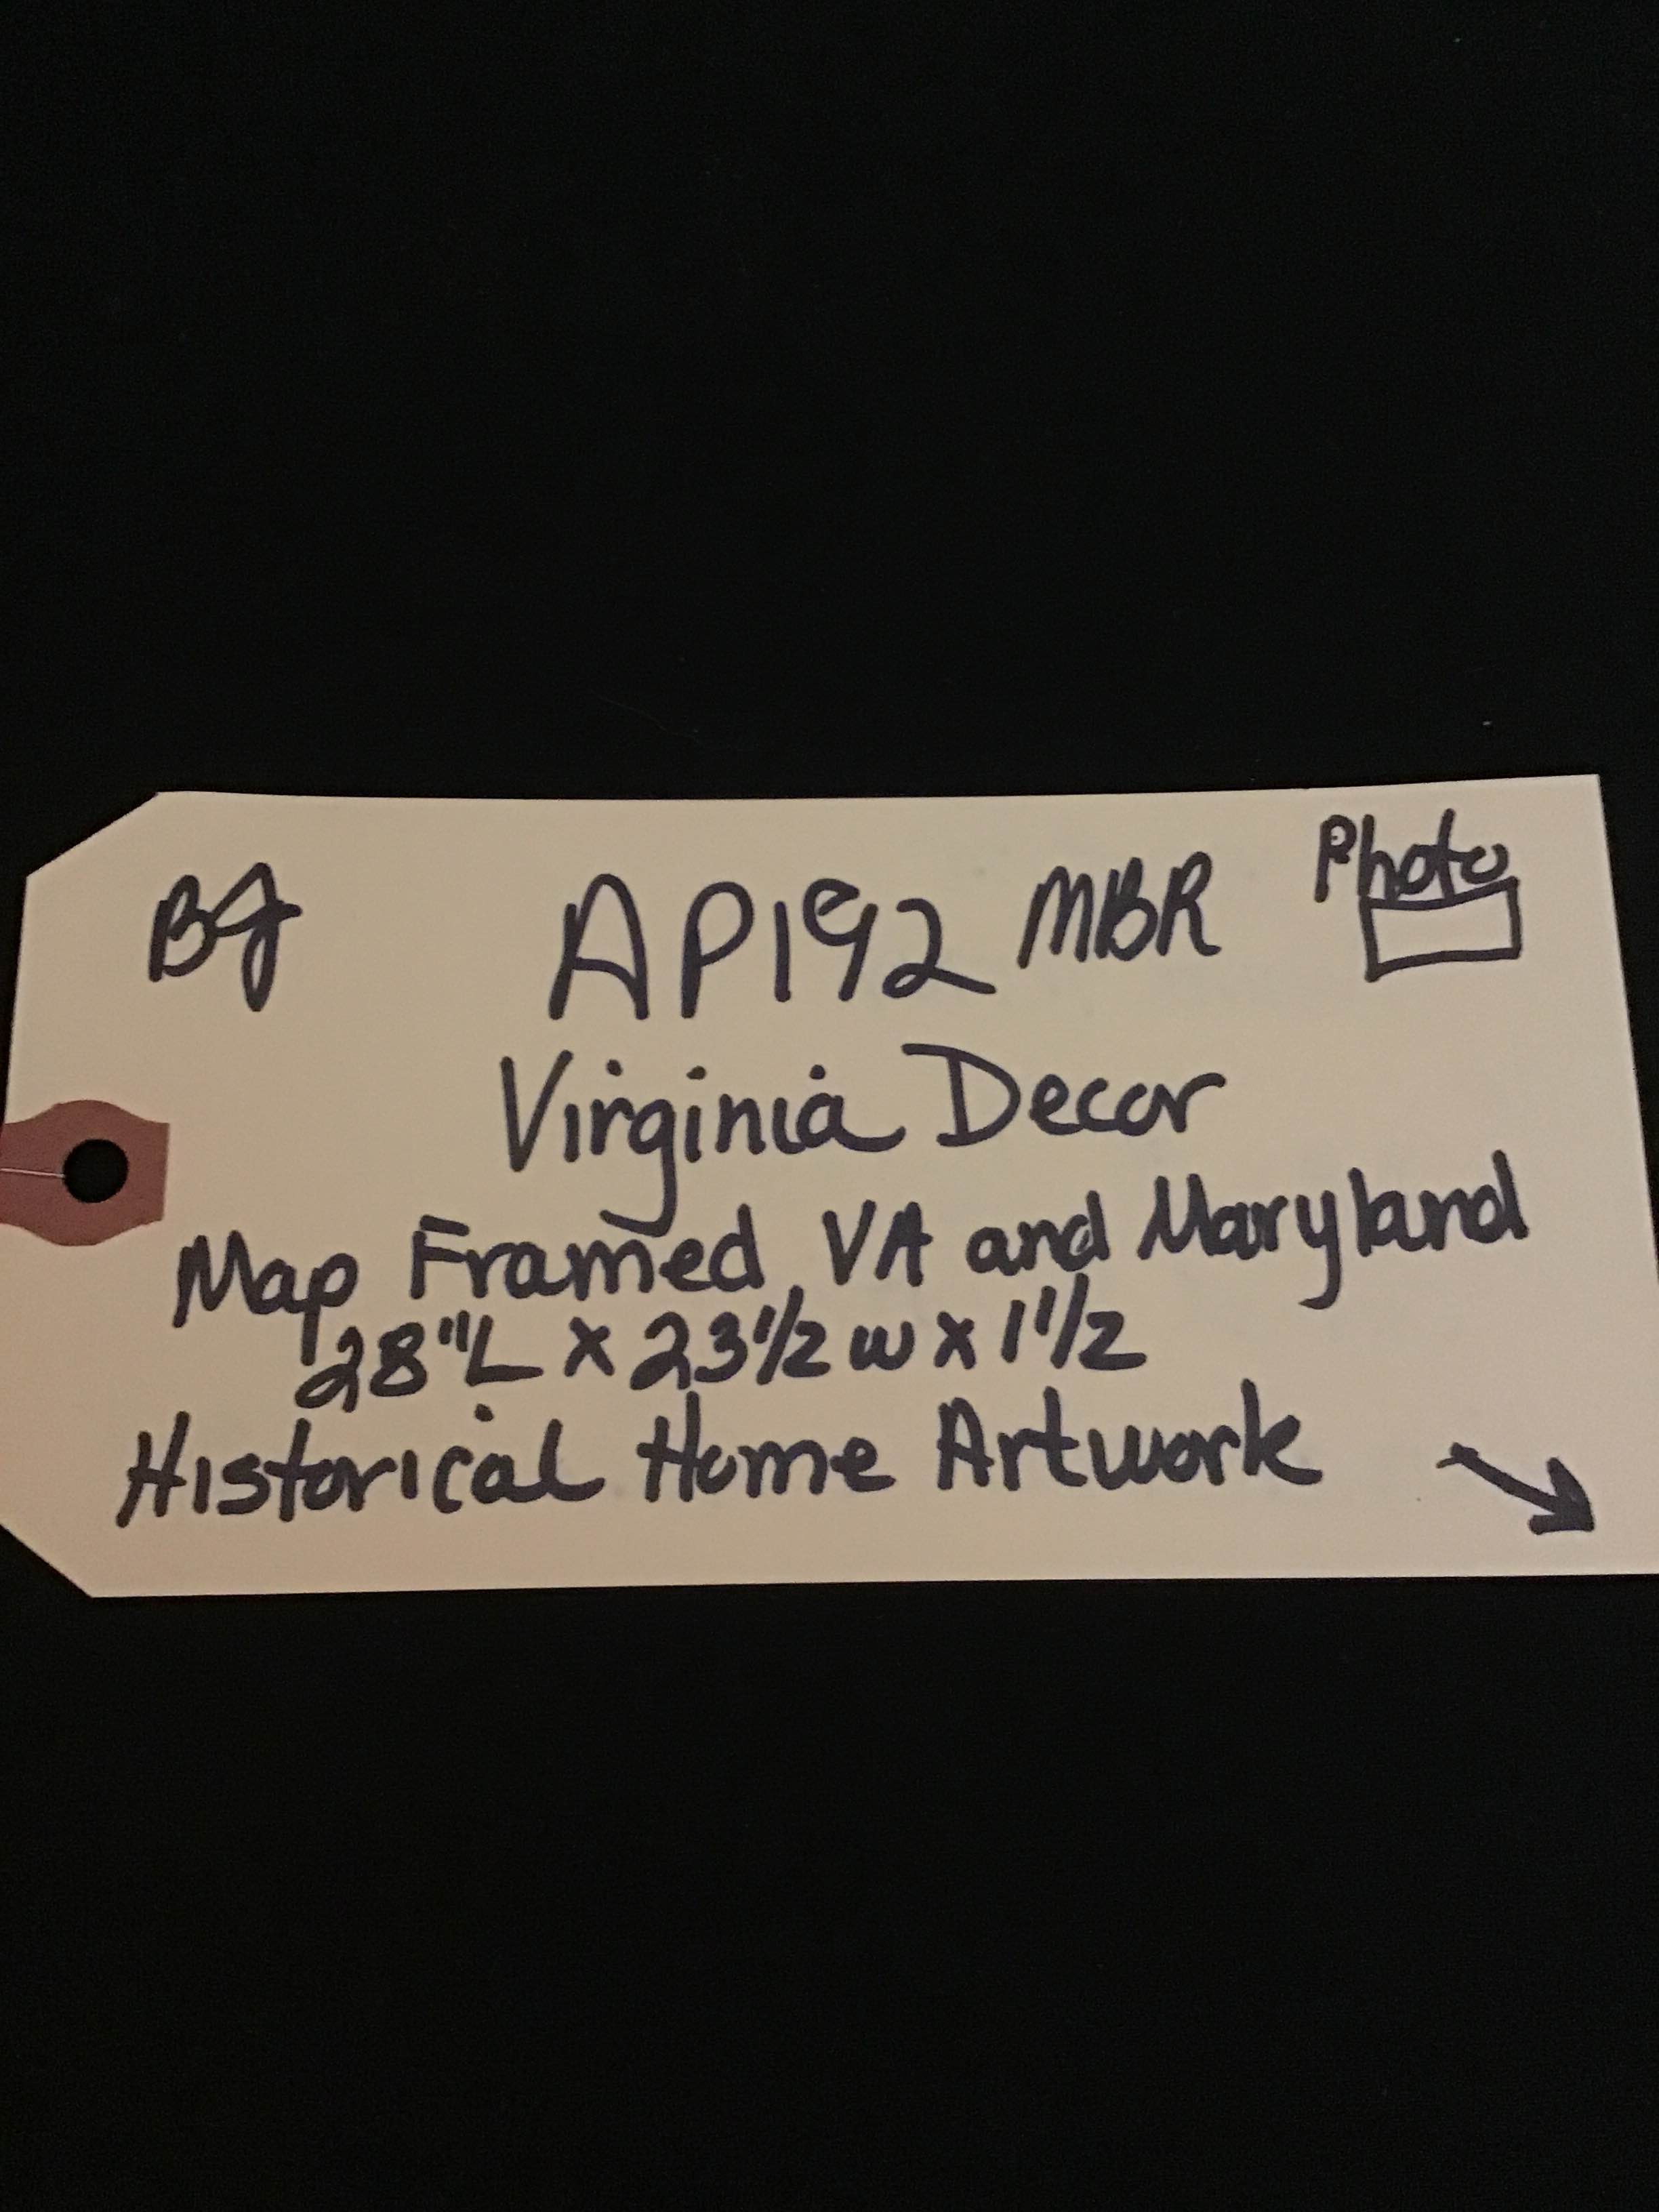 BJ AP192 MBR Photo
Virginia Decor
Map Framed, VA and Maryland
28"L x 23 1/2 w x 1 1/2
Historical Home Artwork